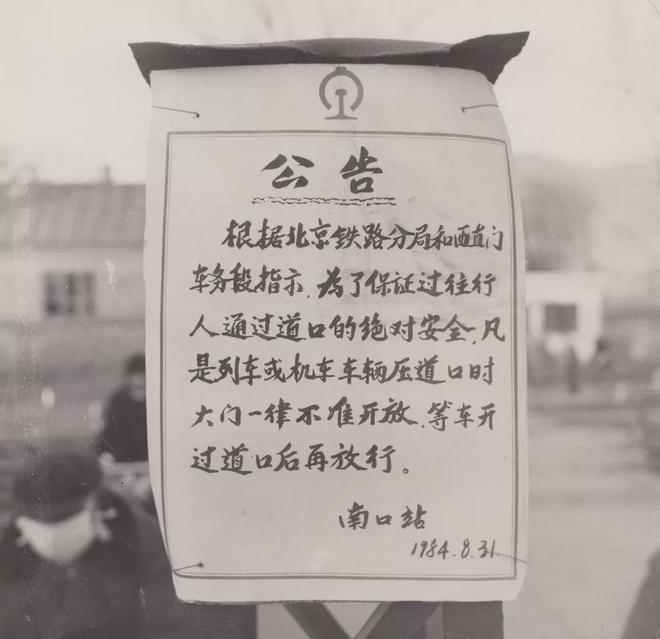 公告
根据北京铁路分局和西直门
车务段指示，为了保证过往行
人通过道口的绝对安全，凡
是列车或机车车辆压道口时
大门一律不准开放，等车开
过道口后再放行。
南口站
1984.8.31